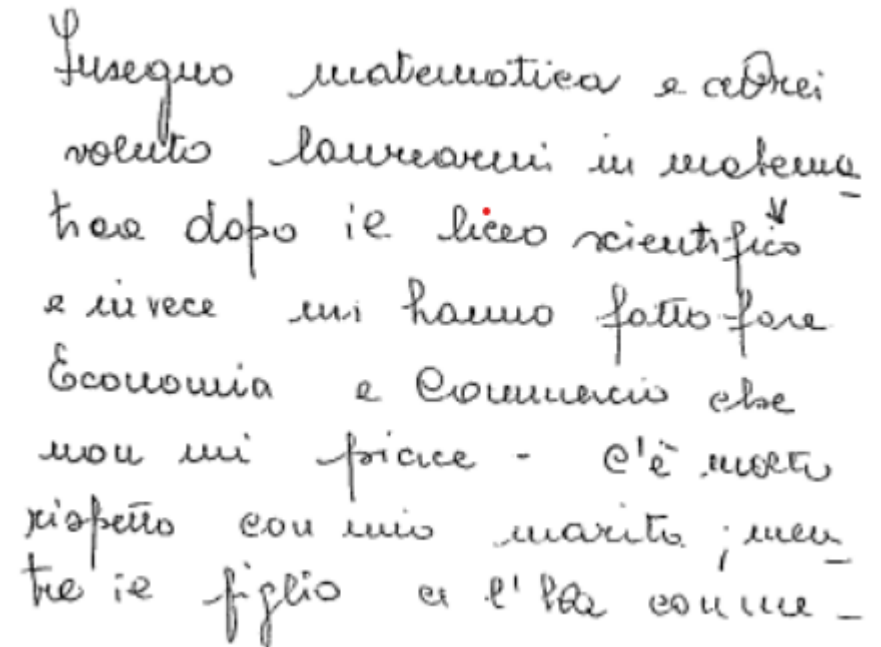 Insegno matematica e avrei
voluto laurearmi in matema_
tica dopo il liceo scientifico
e invece mi hanno fatto fare
Economia e Commercio che
non mi piace - C'è molto
rispetto con mio marito; men_
tre il figlio ce l'ha con me -